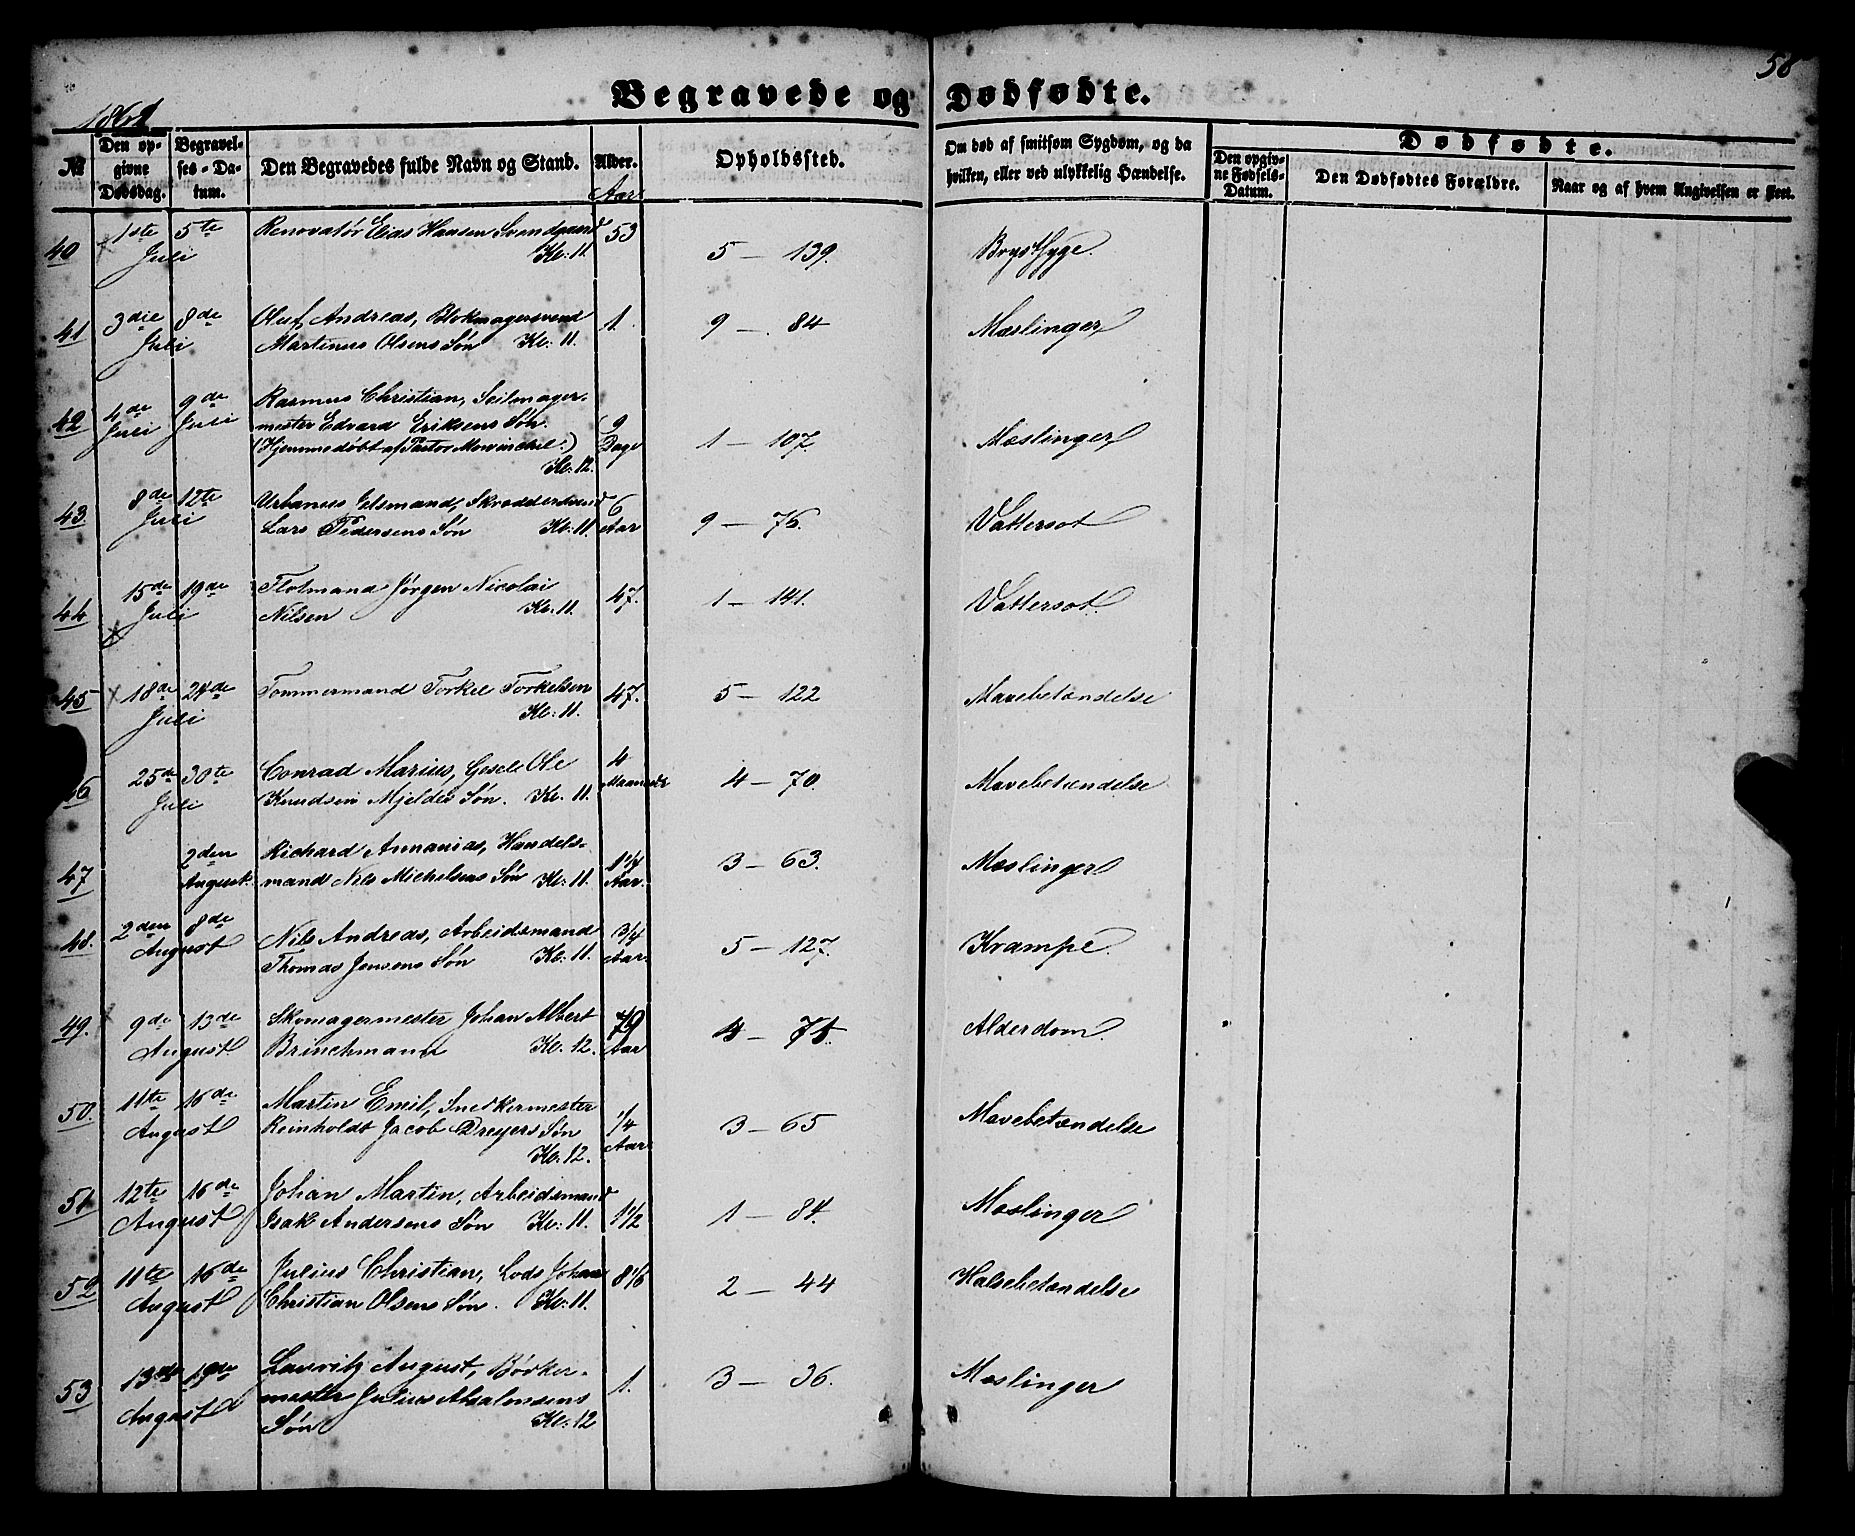 58
1861
Begravede og Dødfødte.
№
Den opgivne Dødsdag.
Begravelses-Datum.
Den Begravedes fulde Navn og Stand.
Alder.
Aar
Opholdssted.
Om død af smitsom Sygdom, og da hvilken, eller ved ulykkelig Hændelse.
Dødfødte.
Den opgivne Fødsels-Datum.
Den Dødfødtes Forældre.
Naar og af hvem Angivelsen er skeet.
40 1ste Juli 5te Renovatør Elias Hansen Svendgaard 53 5 - 139. Brystsyge.
Kl: 11.
41 3die Juli 8de Oluf Andreas, Blokmagersvend 1. 9 - 84 Mæslinger
Martinus Olsens Søn Kl: 11.
42 4de Juli 9de Juli Rasmus Christian, Seilmager-
mester Edvard Eriksens Søn. 9 Dage 1 - 107. Mæslinger
(Hjemmedøbt af Pastor Mowinckel.)
Kl: 12.
43 8de Juli 12te Urbanus Gelsmand, Skræddersvend 6 Aar 9 - 76. Vattersot
Lars Pedersens Søn Kl: 11.
44 15de Juli 19de Flotmand Jørgen Nicolai 47. 1 - 141. Vattersot
Nilsen Kl: 11.
45 18de Juli 24de Tømmermand Torkel Torkelsen 47. 5 - 122 Mavebetændelse
Kl: 11.
46 25de Juli 30te Conrad Marius, Gesel Ole 4 Maaneder 4 - 70. Mavebetændelse
Knudsen Mjeldes Søn. Kl. 11.
47 2den August Richard Annanias, Handels- 1 1/4 Aar. 3 - 63. Mæslinger
mand Nils Michelsens Søn Kl: 11.
48. 2den August 8de Nils Andreas, Arbeidsmand 3/4 Aar. 5 - 127. Krampe.
Thomas Jensens Søn Kl: 11.
49. 9de August 13de Skomagermester Johan Albert 79 Aar 4 - 71. Alderdom.
Brinchmann Kl: 12.
50. 11te August 16de Martin Emil, Snedkermester 1/4 Aar 3 - 65 Mavebetændelse
Reinholdt Jacob Dreyers Søn
Kl: 12.
51. 12te August 16de Johan Martin, Arbeidsmand 1 1/2 1 - 84. Mæslinger
Isak Andersens Søn Kl: 11.
52 11te August 16de Julius Christian, Lods Johan 8 1/6 2 - 44 Halsebetændelse
Christian Olsens Søn. Kl: 11.
53 13de August 19de Lauritz August, Bødker- 1. 3 - 36. Mæslinger
mester Julius Absalonsens
Søn Kl: 12